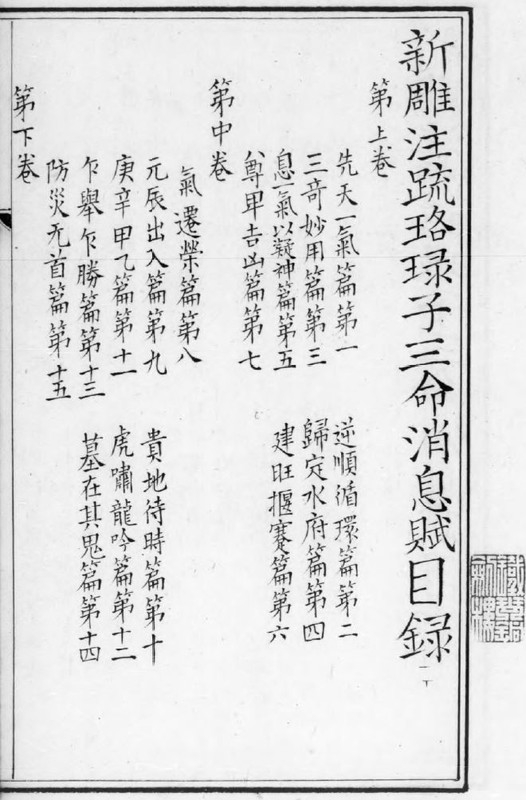 新雕注疏珞琭子三命消息賦目録
第上卷
先天一氣篇第一　逆順循環篇第二
三奇妙用篇第三　歸定水府篇第四
息一氣以凝神篇第五　建旺揠蹇篇第六
尊甲吉凶篇第七
第中卷
氣遷榮篇第八
元辰出入篇第九　貴地待時篇第十
庚辛甲乙篇第十一　虎嘯龍吟篇第十二
乍舉乍勝篇第十三　墓在其鬼篇第十四
防災无首篇第十五
第下卷